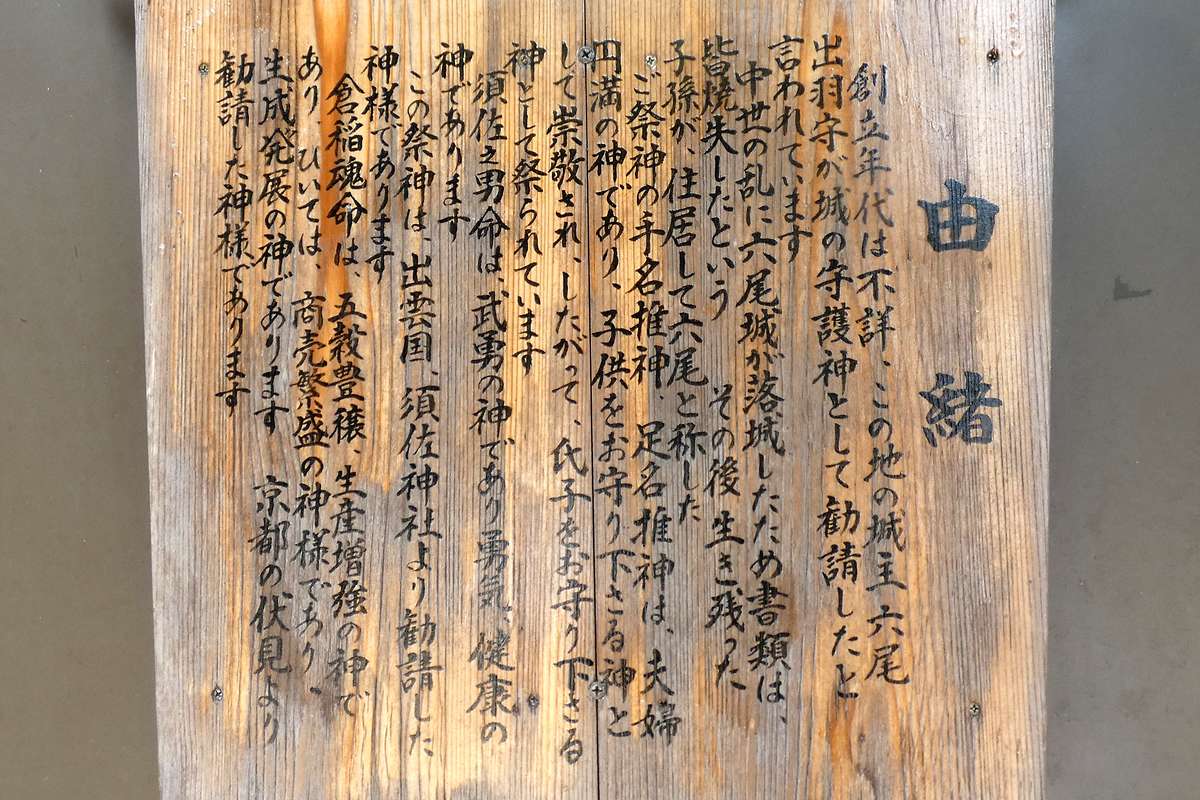 由緒
創立年代は不詳、この地の城主六尾
出羽守が城の守護神として勧請したと
言われています
中世の乱に六尾城が落城したため書類は、
皆焼失したという　その後生き残った
子孫が、住居して六尾と称した
ご祭神の手名推神、足名推神は、夫婦
円満の神であり、子供をお守り下さる神と
して崇敬され、したがって、氏子をお守り下さる
神として祭られています
須佐之男命は、武勇の神であり勇気、健康の
神であります
この祭神は、出雲国、須佐神社より勧請した
神様であります
倉稲魂命は、五穀豊穣、生産増強の神で
あり、ひいては、商売繁盛の神様であり、
生成発展の神であります　京都の伏見より
勧請した神様であります